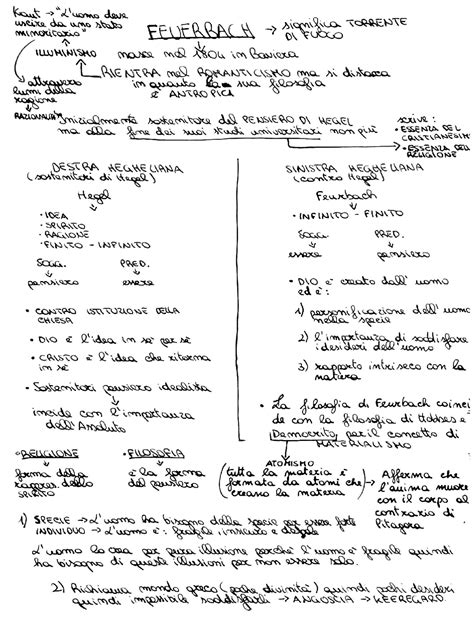 Kant → "L'uomo deve
uscire da uno stato
minoritario"
FEUERBACH → significa TORRENTE
DI FUOCO
ILLUMINISMO
nasce nel 1804 in Baviera
RIENTRA nel ROMANTICISMO ma si distacca
in quanto la sua filosofia
è ANTROPICA
attraverso
lumi della
ragione
RAZIONALISMO
Inizialmente sostenitore del PENSIERO DI HEGEL
ma alla fine dei suoi studi universitari non più
scrive:
• ESSENZA DEL
CRISTIANESIMO
• ESSENZA DELLA
RELIGIONE
DESTRA HEGHELIANA
(sostenitori di Hegel)
Hegel
• IDEA
• SPIRITO
• RAGIONE
• FINITO - INFINITO
SOGG. PRED.
pensiero essere
• CONTRO ISTITUZIONE DELLA
CHIESA
• DIO è l'idea in se per sé
• CRISTO è l'idea che ritorna
in se
• Sostenitori pensiero idealista
incide con l'importanza
dell'Assoluto
• RELIGIONE
forma della
rappres. dello
SPIRITO
• FILOSOFIA
è la forma
del pensiero
SINISTRA HEGHELIANA
(contro Hegel)
Feurbach
• INFINITO - FINITO
SOGG. PRED.
essere pensiero
• DIO è creato dall'uomo
ed è:
1) personificazione dell'uomo
nella specie
2) l'importanza di soddisfare
i desideri dell'uomo
3) rapporto intriseco con la
natura
• La filosofia di Feurbach coinci
de con la filosofia di Hobbes e
Democrito per il concetto di
MATERIALISMO
ATOMISMO
(tutta la materia è
formata da atomi che
creano la materia)
→ Afferma che
l'anima muore
con il corpo al
contrario di
Pitagora
1) SPECIE → L'uomo ha bisogno della specie per essere forte
INDIVIDUO → L'uomo è: fragile, insicuro e
L'uomo la crea per pura illusione perché l'uomo è fragile quindi
ha bisogno di queste illusioni per non essere solo.
2) Richiama mondo greco (poche divinità) quindi pochi desideri
quindi impossibile soddisfarli → ANGOSCIA → KEEREGARD.